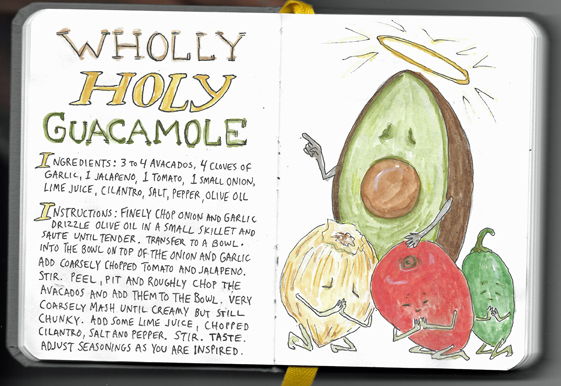 WHOLLY
HOLY
GUACAMOLE
INGREDIENTS: 3 TO 4 AVACADOS, 4 CLOVES OF
GARLIC, 1 JALAPENO, 1 TOMATO, 1 SMALL ONION,
LIME JUICE, CILANTRO, SALT, PEPPER, OLIVE OIL
INSTRUCTIONS: FINELY CHOP ONION AND GARLIC
DRIZZLE OLIVE OIL IN A SMALL SKILLET AND
SAUTE UNTIL TENDER. TRANSFER TO A BOWL.
INTO THE BOWL ON TOP OF THE ONION AND GARLIC
ADD COARSELY CHOPPED TOMATO AND JALAPENO.
STIR. PEEL, PIT AND ROUGHLY CHOP THE
AVACADOS AND ADD THEM TO THE BOWL. VERY
COARSELY MASH UNTIL CREAMY BUT STILL
CHUNKY. ADD SOME LIME JUICE, CHOPPED
CILANTRO, SALT AND PEPPER. STIR. TASTE.
ADJUST SEASONINGS AS YOU ARE INSPIRED.